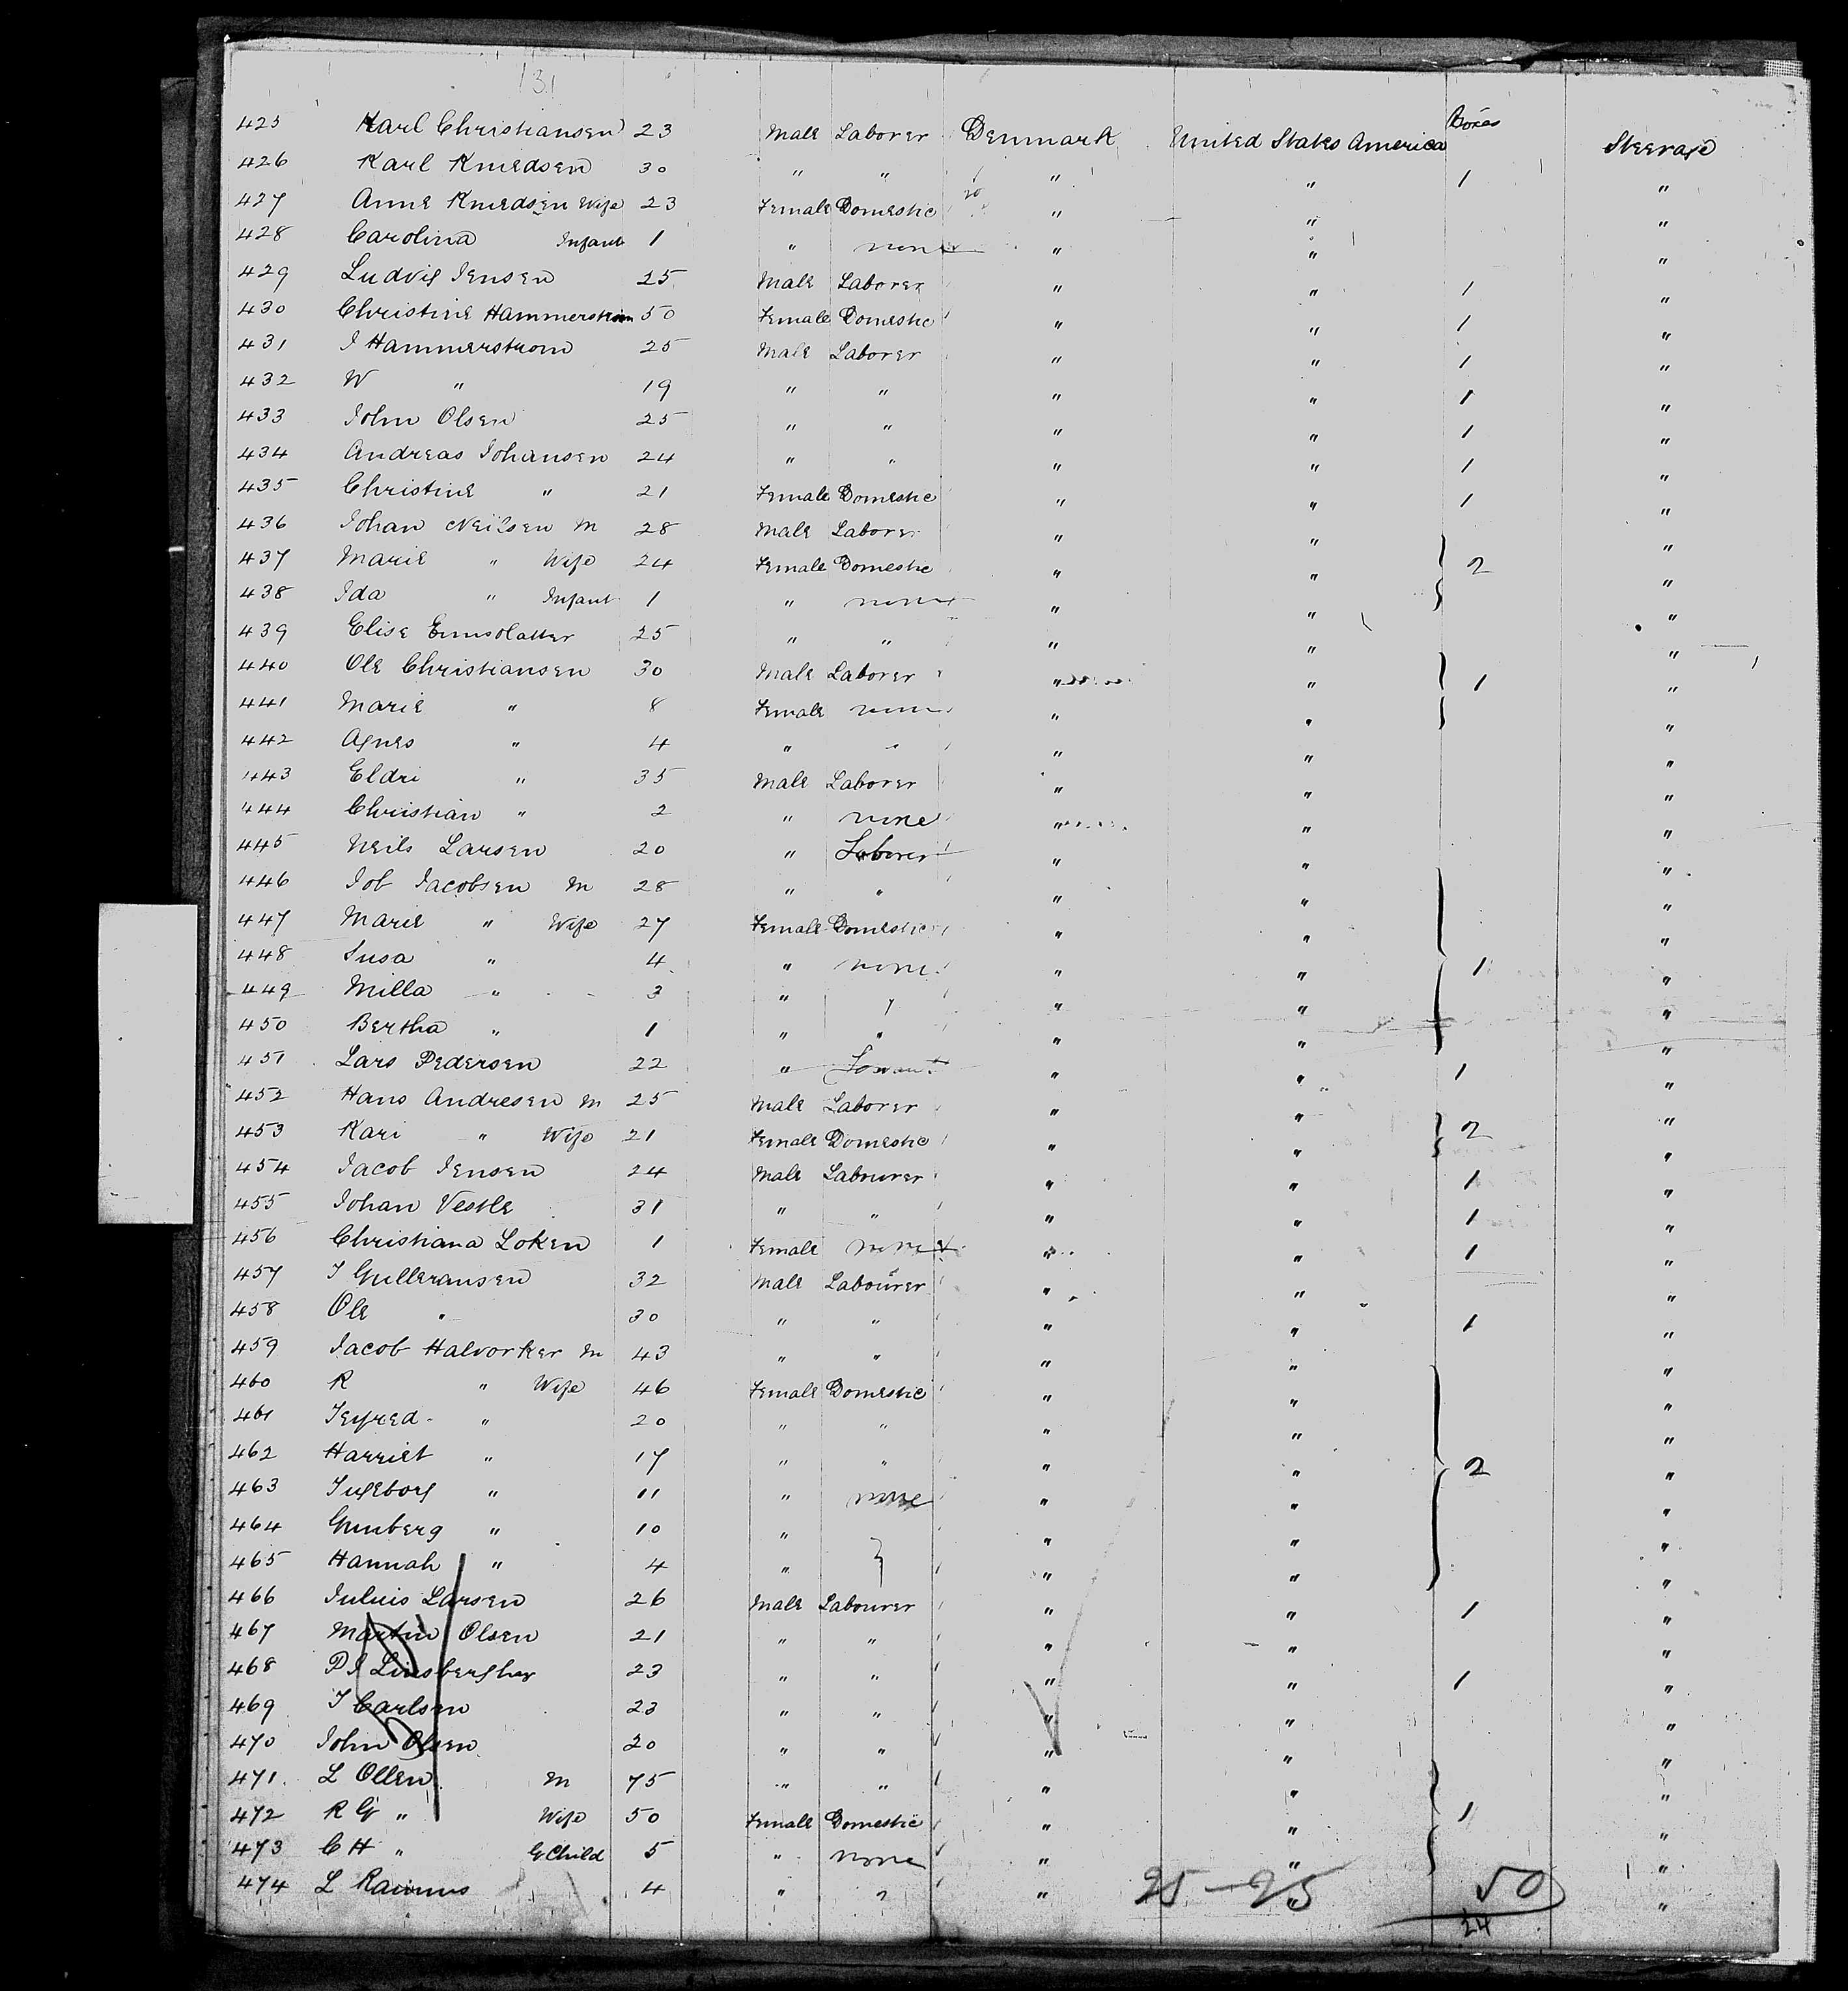 131
Boxes
425 Karl Christiansen 23 Male Laborer Denmark United States America Steerage
426 Karl Knudsen 30 " " " " 1 "
427 Anne Knudsen Wife 23 Female Domestic " " "
428 Carolina Infant 1 " none " " "
429 Ludvig Jensen 25 Male Laborer " " 1 "
430 Christine Hammerstrom 50 Female Domestic " " 1 "
431 J Hammerstrom 25 Male Laborer " " 1 "
432 W " 19 " " " " 1 "
433 John Olsen 25 " " " " 1 "
434 Andreas Johansen 24 " " " " 1 "
435 Christine " 21 Female Domestic " " 1 "
436 Johan Neilsen M 28 Male Laborer " " "
437 Marie " Wife 24 Female Domestic " " 2 "
438 Ida " Infant 1 " none " " "
439 Elise 25 " " " " "
440 Ole Christiansen 30 Male Laborer " " 1 "
441 Marie " 8 Female none " " "
442 Agnes " 4 " " " " "
443 Eldri " 35 Male Laborer " " "
444 Christian " 2 " none " " "
445 Neils Larsen 20 " Laborer " " "
446 Job Jacobsen M 28 " " " " "
447 Marie " Wife 27 Female Domestic " " "
448 Susa " 4 " none " " 1 "
449 Milla " 3 " " " " "
450 Bertha " 1 " " " " "
451 Lars Pedersen 22 " " " 1 "
452 Hans Andresen M 25 Male Laborer " " "
453 Kari " Wife 21 Female Domestic " " 2 "
454 Jacob Jensen 24 Male Labourer " " 1 "
455 Johan Vestle 31 " " " " 1 "
456 Christiana Loken 1 Female none " " 1 "
457 J Gulleransen 32 Male Labourer " " "
458 Ole " 30 " " " " 1 "
459 Jacob Halvorker M 43 " " " " "
460 R " Wife 46 Female Domestic " " "
461 " 20 " " " " "
462 Harriet " 17 " " " " 2 "
463 Ingeborg " 11 " none " " "
464 Gunberg " 10 " " " "
465 Hannah " 4 " " " "
466 Julius Larsen 26 Male Labourer " " 1 "
467 Martin Olsen 21 " " " " "
468 P J 23 " " " " 1 "
469 J Carlsen 23 " " " " "
470 John Olsen 20 " " " " "
471 L Ollen M 75 " " " " "
472 R G " Wife 50 Female Domestic " " 1 "
473 C H " G Child 5 " none " " "
474 L 4 " " " " "
25-25 50
24